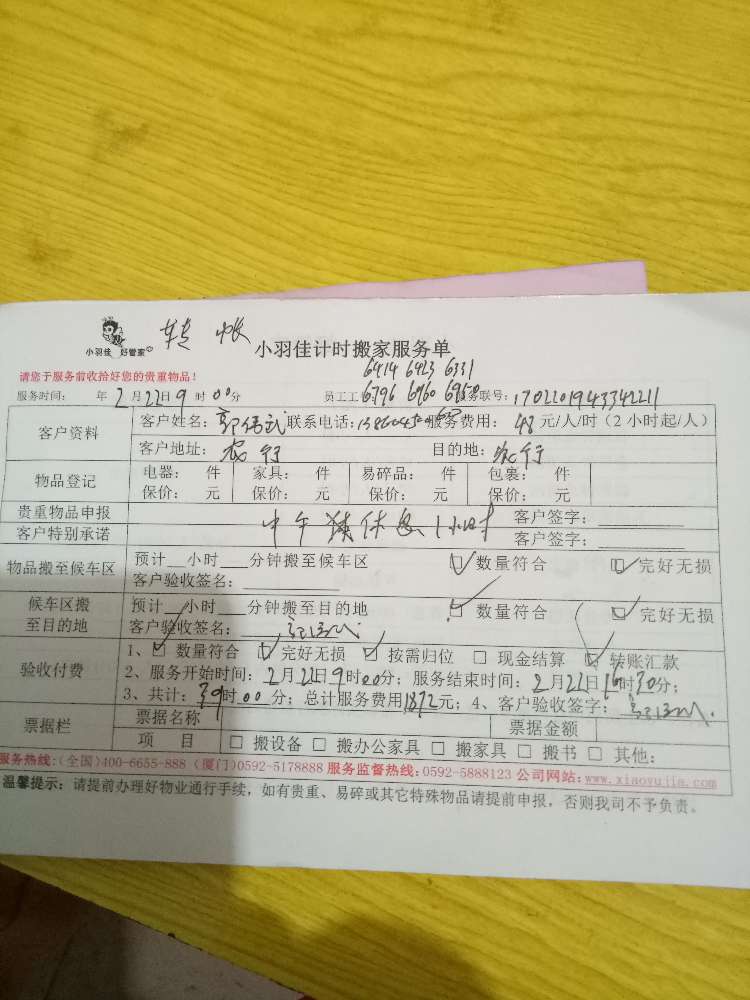 小羽佳 好管家
转 帐
小羽佳计时搬家服务单
6414 6423 6331
请您于服务前收拾好您的贵重物品!
服务时间: 年 2 月 22 日 9 时 00 分 员工工 6796 6960 6950 务联号: 1702201943342211
客户资料 客户姓名: 联系电话: 服务费用: 48 元/人/时 (2 小时起/人)
客户地址: 农行 目的地: 农行
物品登记 电器: 件 家具: 件 易碎品: 件 包裹: 件
保价: 元 保价: 元 保价: 元 保价: 元
贵重物品申报 客户签字:
中午 休息 1小时
客户特别承诺 客户签字:
物品搬至候车区 预计__小时___分钟搬至候车区 数量符合 完好无损
客户验收签名:
候车区搬至目的地 预计__小时___分钟搬至目的地 数量符合 完好无损
客户验收签名:
验收付费 1、 数量符合 完好无损 按需归位 现金结算 转账汇款
2、服务开始时间: 2月22日9时00分; 服务结束时间: 2月22日16时30分;
3、共计: 39时00分; 总计服务费用1872元; 4、客户验收签字:
票据栏 票据名称 票据金额
项 目 搬设备 搬办公家具 搬家具 搬书 其他:
服务热线:(全国)400-6655-888 (厦门)0592-5178888 服务监督热线:0592-5888123 公司网站:www.xiaoyujia.com
温馨提示: 请提前办理好物业通行手续, 如有贵重、易碎或其它特殊物品请提前申报, 否则我司不予负责。